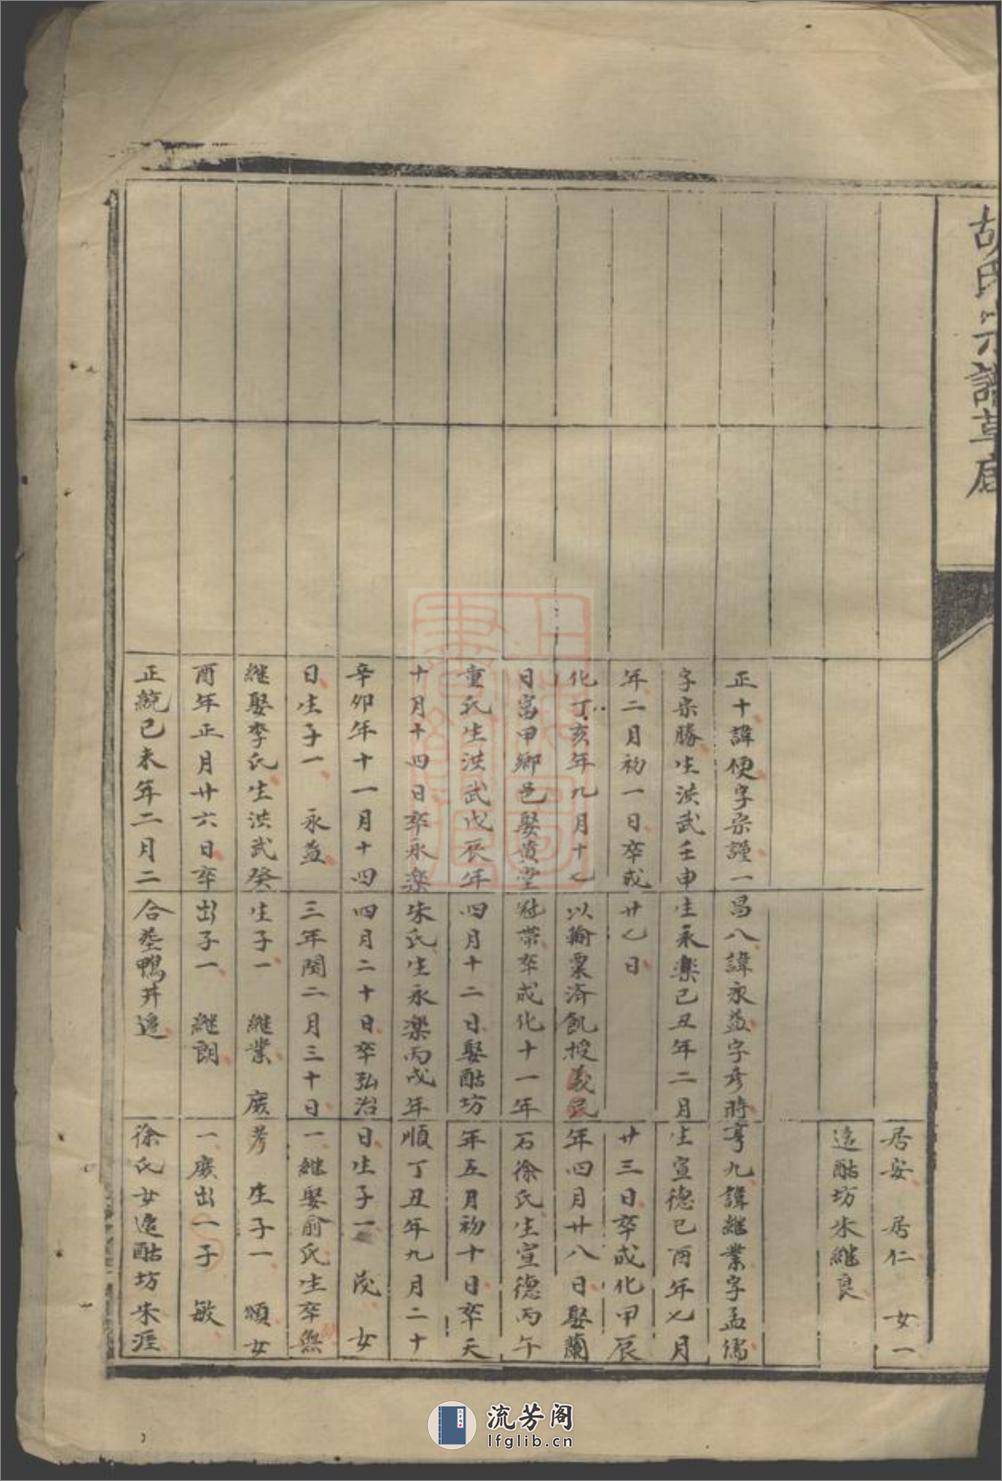 胡氏宗譜草底
正十諱便字宗謹一
字宗勝生洪武壬申
年二月初一日卒成
化丁亥年九月十七
日富甲鄉邑娶黃堂
童氏生洪武戊辰年
十月十四日卒永樂
辛卯年十一月十四
日生子一 永益
繼娶李氏生洪武癸
酉年正月廿六日卒
正統己未年二月二
昌八諱永益字彥時
生永樂己丑年二月
廿七日
以輸粟済飢授義民
冠帶卒成化十一年
四月十二日娶酤坊
朱氏生永樂丙戌年
四月二十日卒弘治
三年閏二月三十日
生子一 繼業 庶
出子一 繼朗
合塟鴨井邉
居安 居仁 女一
適酤坊朱繼良
亨九諱繼業字孟儒
生宣德己酉年七月
廿三日卒成化甲辰
年四月廿八日娶蘭
石徐氏生宣德丙午
年五月初十日卒天
順丁丑年九月二十
日生子一 茂 女
一繼娶俞氏生卒無
考 生子一 頌女
一庶出一子 敏
徐氏女適酤坊朱涯
流芳阁
lfglib.cn